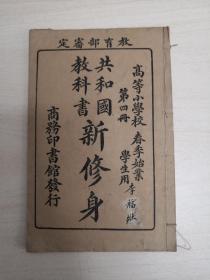 教育部審定
高等小學校 春季始業
第四冊 學生用
共和國
教科書
新修身
商務印書館發行
李